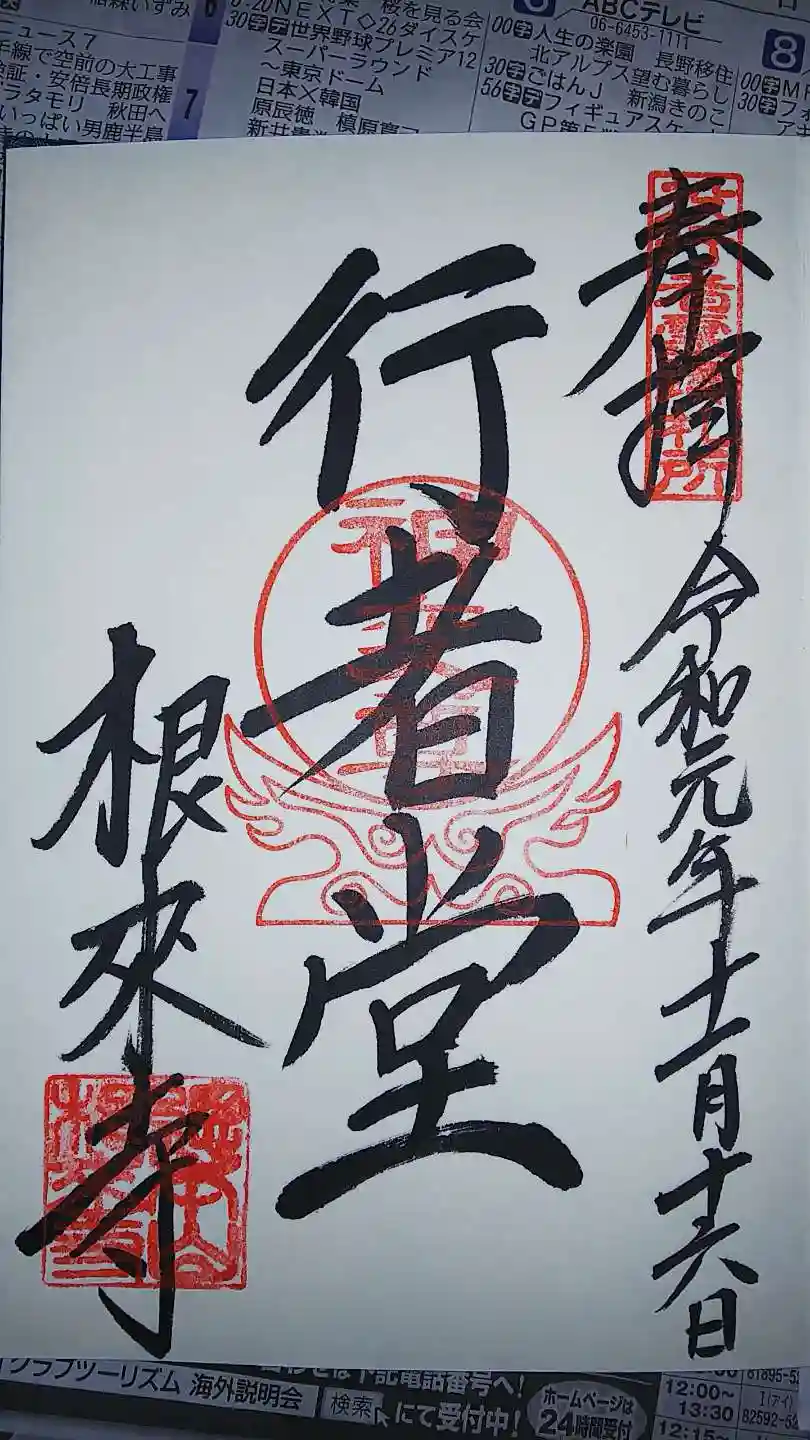 6:20NEXT◇26ダイスケ
桜を見る会
30字デ世界野球プレミア12
スーパーラウンド
〜東京ドーム
日本×韓国
ニュース7
手線で空前の大工事
安倍長期政権
ブラタモリ 秋田へ
いっぱい男鹿半島
7
ABCテレビ
06-6453-1111
00字人生の楽園 長野移住
北アルプス望む暮らし
30字ごはんJ 新潟きのこ
56字デフィギュアスケー
8
奉拝
令和元年十一月十六日
行者堂
神変堂
根来寺
クラブツーリズム 海外説明会
検索
にて受付中!
下記電話番号へ!
ホームページは
24時間受付
12:00〜
13:30
12:15〜
81895-5
I(アイ)